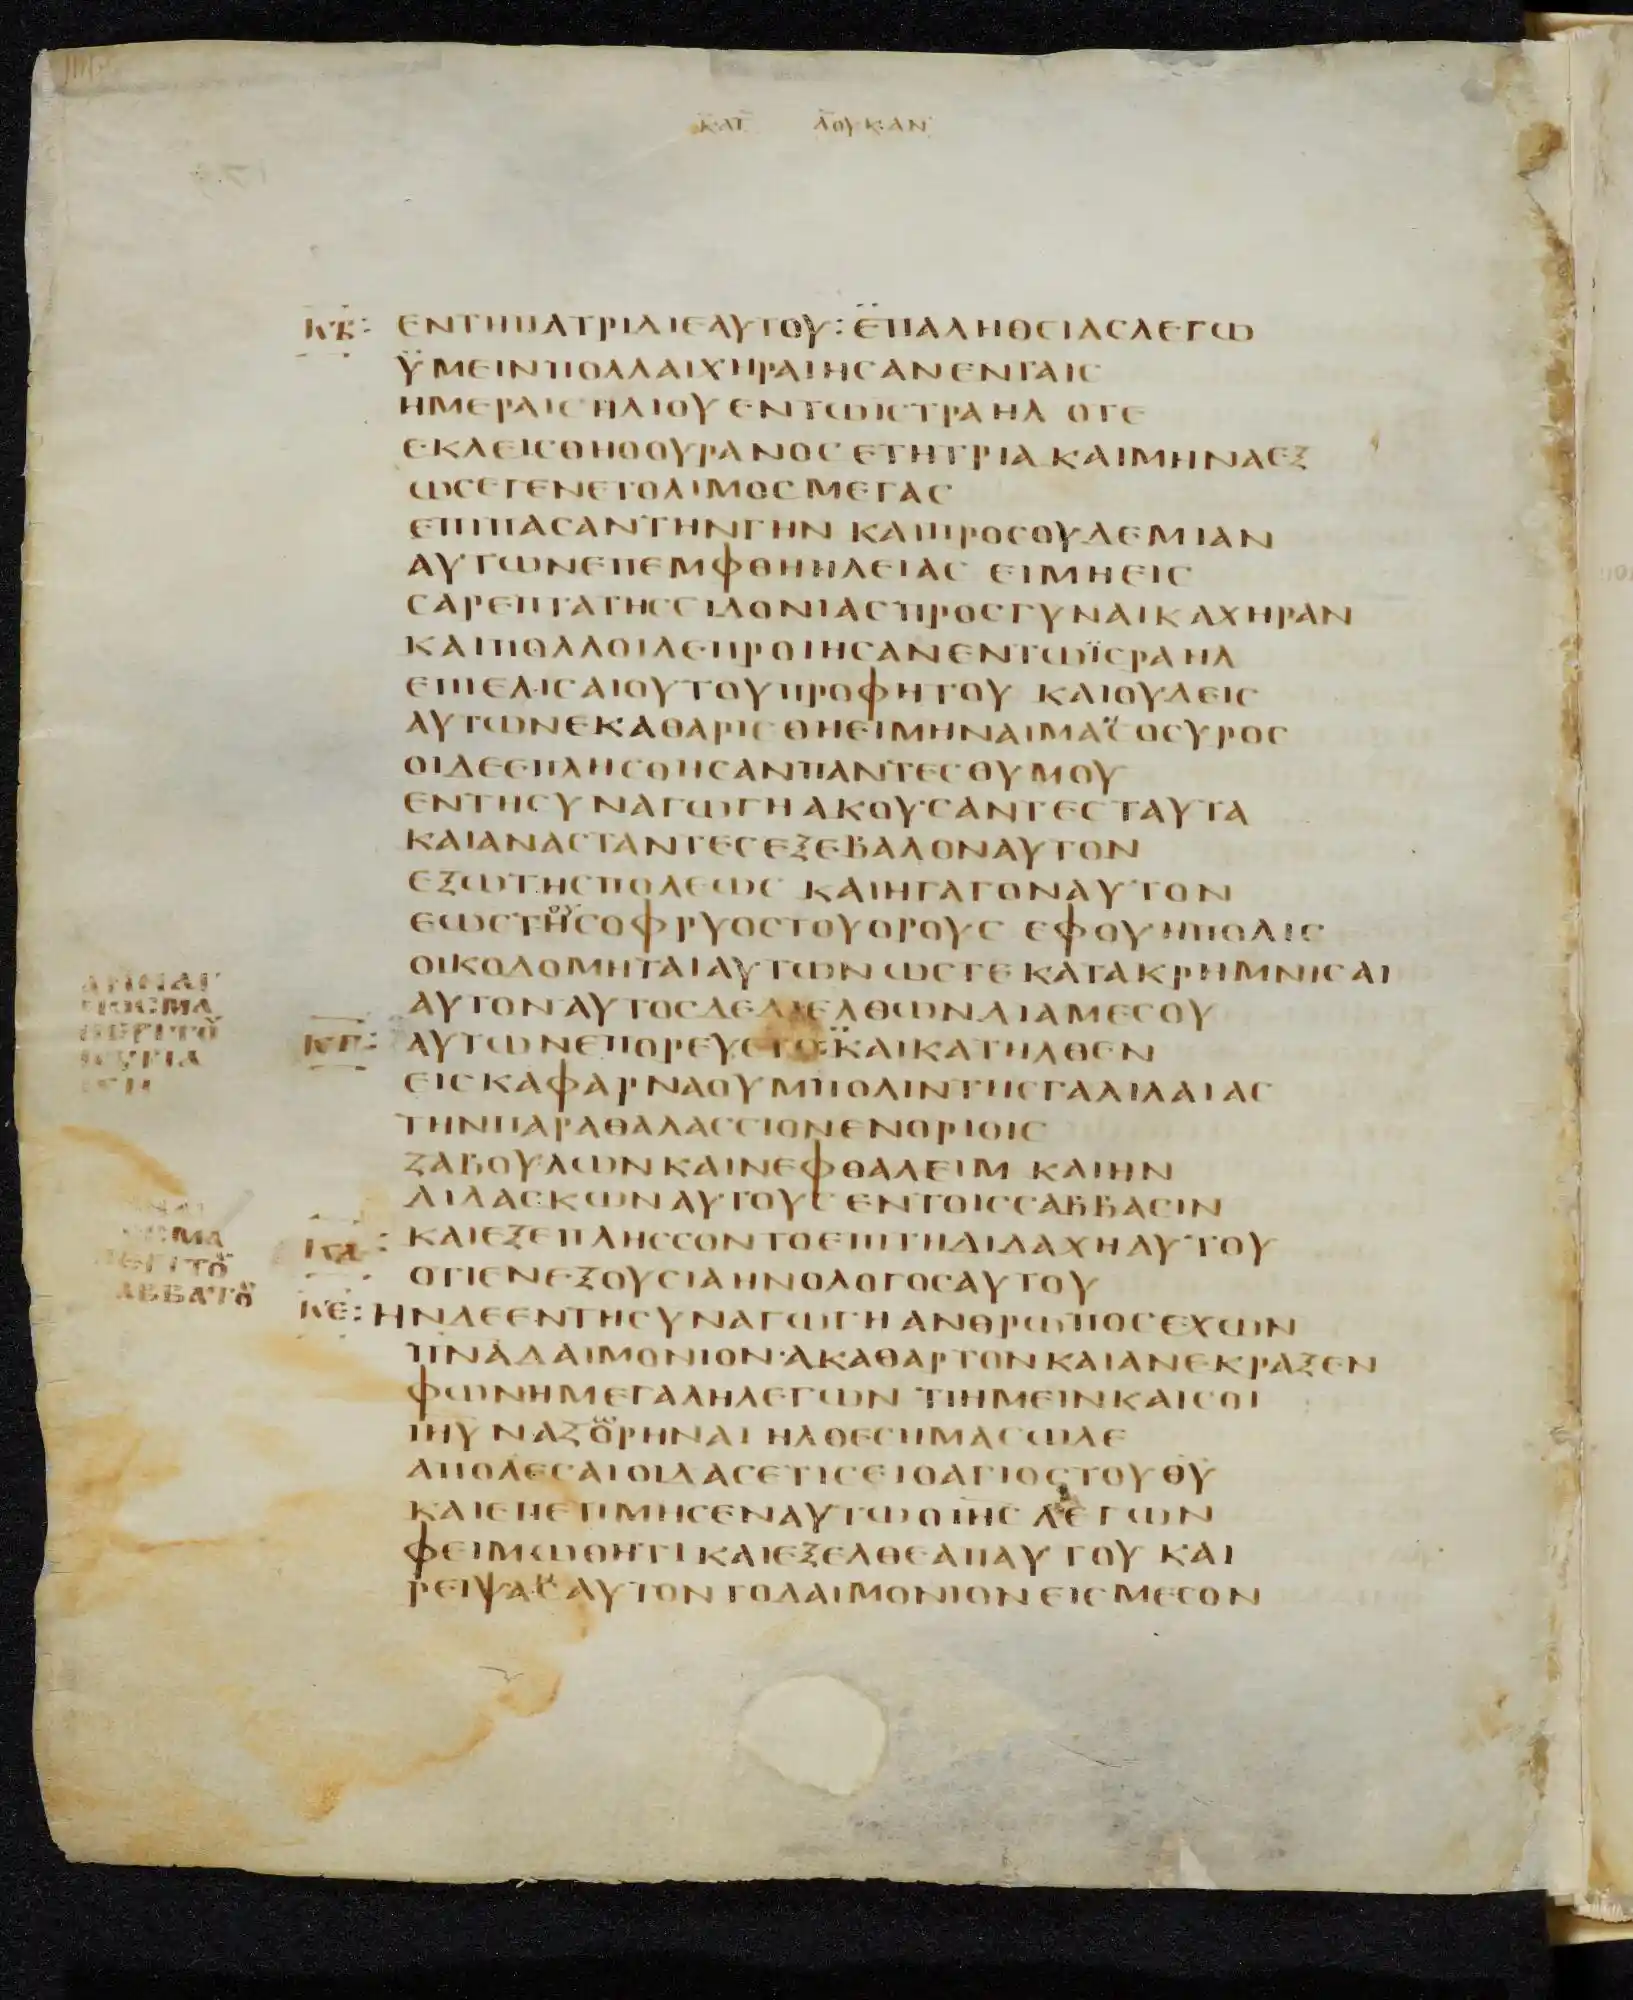 ΚΑΤ ΛΟΥΚΑΝ
ΚΒ: ΕΝΤΗΠΑΤΡΙΔΙΕΑΥΤΟΥ: ΕΠΑΛΗΘΕΙΑΣΛΕΓΩ
ΫΜΕΙΝΠΟΛΛΑΙΧΗΡΑΙΗΣΑΝΕΝΤΑΙΣ
ΗΜΕΡΑΙΣΗΛΙΟΥΕΝΤΩΙΣΤΡΑΗΛ ΟΤΕ
ΕΚΛΕΙΣΘΗΟΟΥΡΑΝΟΣ ΕΤΗΤΡΙΑ ΚΑΙΜΗΝΑΕΞ
ΩΣΕΓΕΝΕΤΟΛΙΜΟΣ ΜΕΓΑΣ
ΕΠΙΠΑΣΑΝΤΗΝΓΗΝ ΚΑΙΠΡΟΣΟΥΔΕΜΙΑΝ
ΑΥΤΩΝΕΠΕΜΦΘΗΗΛΕΙΑΣ ΕΙΜΗΕΙΣ
ΣΑΡΕΠΤΑΤΗΣΣΙΔΟΝΙΑΣ ΠΡΟΣΓΥΝΑΙΚΑΧΗΡΑΝ
ΚΑΙΠΟΛΛΟΙΛΕΠΡΟΙΗΣΑΝΕΝΤΩΪΣΡΑΗΛ
ΕΠΙΕΛΙΣΑΙΟΥΤΟΥΠΡΟΦΗΤΟΥ ΚΑΙΟΥΔΕΙΣ
ΑΥΤΩΝΕΚΑΘΑΡΙΣΘΗΕΙΜΗΝΑΙΜΑΣΟΣΥΡΟΣ
ΟΙΔΕΕΠΛΗΣΘΗΣΑΝΠΑΝΤΕΣΘΥΜΟΥ
ΕΝΤΗΣΥΝΑΓΩΓΗΑΚΟΥΣΑΝΤΕΣ ΤΑΥΤΑ
ΚΑΙΑΝΑΣΤΑΝΤΕΣΕΞΕΒΑΛΟΝΑΥΤΟΝ
ΕΞΩΤΗΣΠΟΛΕΩΣ ΚΑΙΗΓΑΓΟΝΑΥΤΟΝ
ΕΩΣΤΗΣΟΦΡΥΟΣΤΟΥΟΡΟΥΣ ΕΦΟΥΗΠΟΛΙΣ
ΟΙΚΟΔΟΜΗΤΑΙΑΥΤΩΝ ΩΣΤΕ ΚΑΤΑΚΡΗΜΝΙΣΑΙ
ΑΥΤΟΝ ΑΥΤΟΣΔΕΔΙΕΛΘΩΝΔΙΑΜΕΣΟΥ
ΚΓ: ΑΥΤΩΝΕΠΟΡΕΥΕΤΟ: ΚΑΙΚΑΤΗΛΘΕΝ
ΕΙΣΚΑΦΑΡΝΑΟΥΜΠΟΛΙΝΤΗΣΓΑΛΙΛΑΙΑΣ
ΤΗΝΠΑΡΑΘΑΛΑΣΣΙΟΝΕΝΟΡΙΟΙΣ
ΖΑΒΟΥΛΩΝΚΑΙΝΕΦΘΑΛΕΙΜ ΚΑΙΗΝ
ΔΙΔΑΣΚΩΝΑΥΤΟΥΣ ΕΝΤΟΙΣΣΑΒΒΑΣΙΝ
ΚΔ: ΚΑΙΕΞΕΠΛΗΣΣΟΝΤΟΕΠΙΤΗΔΙΔΑΧΗΑΥΤΟΥ
ΟΤΙΕΝΕΞΟΥΣΙΑΗΝΟΛΟΓΟΣΑΥΤΟΥ
ΚΕ: ΗΝΔΕΕΝΤΗΣΥΝΑΓΩΓΗΑΝΘΡΩΠΟΣΕΧΩΝ
ΠΝΑΔΑΙΜΟΝΙΟΝ·ΑΚΑΘΑΡΤΟΝΚΑΙΑΝΕΚΡΑΞΕΝ
ΦΩΝΗΜΕΓΑΛΗΛΕΓΩΝ ΤΙΗΜΕΙΝΚΑΙΣΟΙ
ΙΗΥ ΝΑΖΟΡΗΝΑΙ ΗΛΘΕΣΗΜΑΣΩΔΕ
ΑΠΟΛΕΣΑΙΟΙΔΑΣΕΤΙΣΕΙΟΑΓΙΟΣΤΟΥΘΥ
ΚΑΙΕΠΕΤΙΜΗΣΕΝΑΥΤΩΟΙΗΣ ΛΕΓΩΝ
ΦΕΙΜΩΘΗΤΙ ΚΑΙΕΞΕΛΘΕΑΠΑΥΤΟΥ ΚΑΙ
ΡΕΙΨΑΣΑΥΤΟΝΤΟΔΑΙΜΟΝΙΟΝΕΙΣ ΜΕΣΟΝ